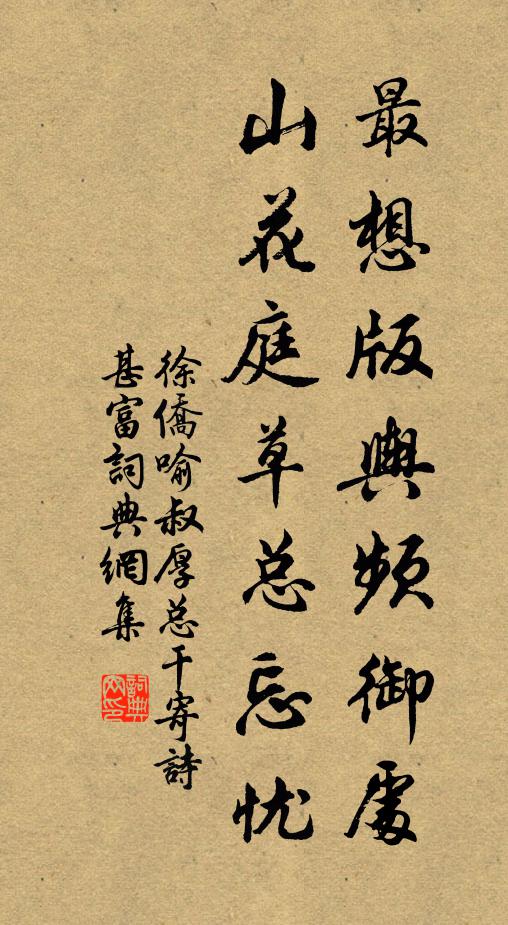 最想版輿頻御處
山花庭草总忘忧
徐僑喻叔厚总干寄詩
甚富詞典網集
詞典网印